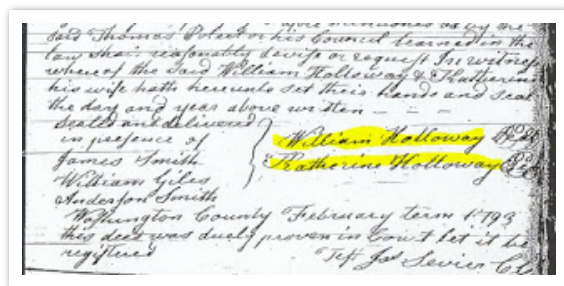 said Thomas or his Council learned in the
law shall reasonably devise or request In witness
whereof the said William Holloway & Katherine
his wife hath hereunto set their hands and seal
the day and year above written
Sealed and delivered
in presence of
William Holloway
James Smith
Katherine Holloway
William Giles
Anderson Smith
Washington County February term 1793
this deed was duely proven in Court let it be
registered
Test Jas Sevier